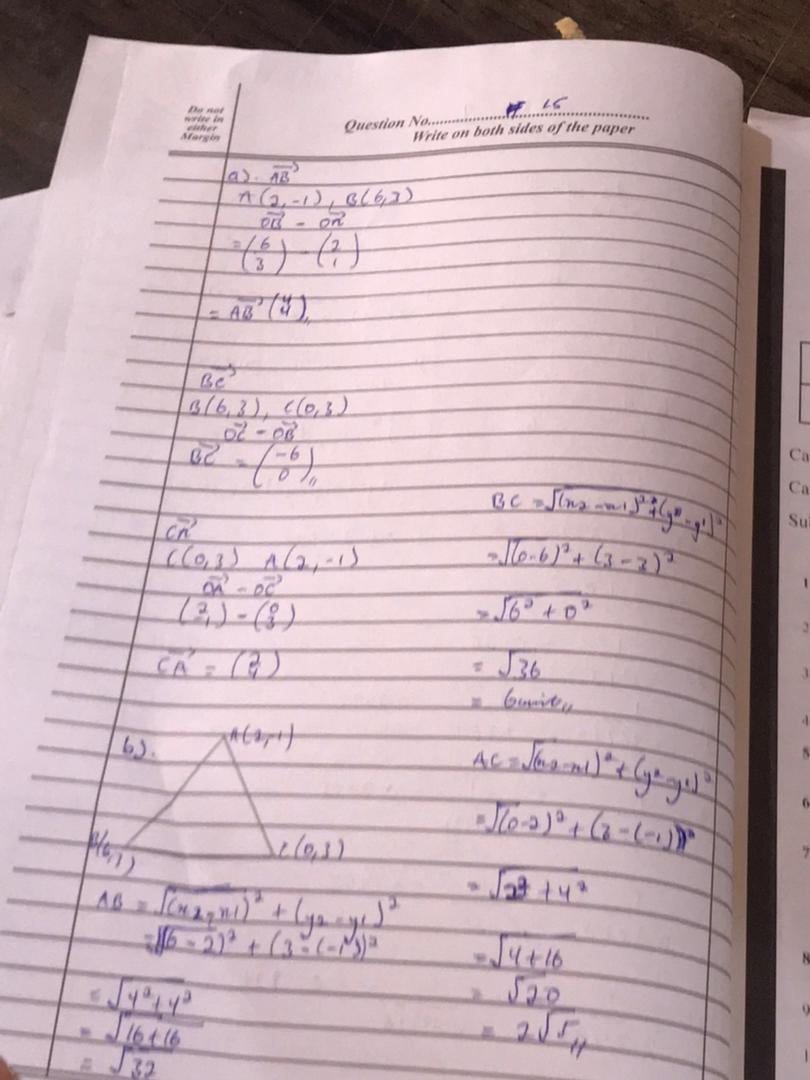 Do not
write in
either
Margin
Question No. 15
Write on both sides of the paper
a). AB→
A(2,-1), B(6,3)
OB→ - OA→
= (6 3) - (2 1)
= AB→ (4 4),,
BC→
B(6,3), C(0,3)
OC→ - OB→
BC→ = (-6 0),,
CA→
C(0,3) A(2,-1)
OA→ - OC→
(2 -1) - (0 3)
CA→ = (2 4)
b).
A(2,-1)
B(6,3)
C(0,3)
AB = √(x2-x1)² + (y2-y1)²
= √(6-2)² + (3-(-1))²
= √4²+4²
= √16+16
= √32
BC = √(x2-x1)²+(y2-y1)²
= √(0-6)² + (3-3)²
= √6² + 0²
= √36
= 6units,,
AC = √(x2-x1)² + (y2-y1)²
= √(0-2)² + (3-(-1))²
= √2² + 4²
= √4+16
= √20
= 2√5,,
Ca
Ca
Su
1
2
3
4
5
6
7
8
9
1